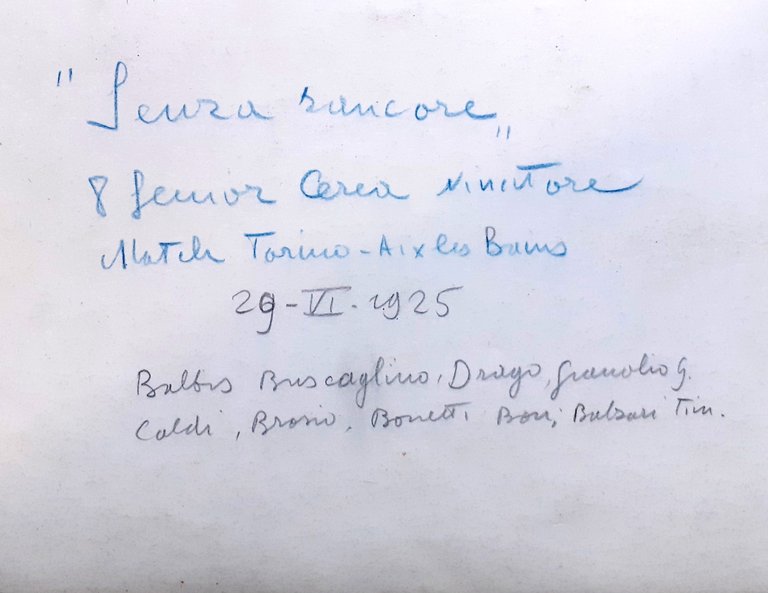 "Senza rancore„
8 Senior Cerea vincitore
Match Torino-Aix les Bains
29-VI-1925
Balbis Buscaglino, Drago, G.
Caldi, Brosio, Bonetti Boni, Balzari Tim.